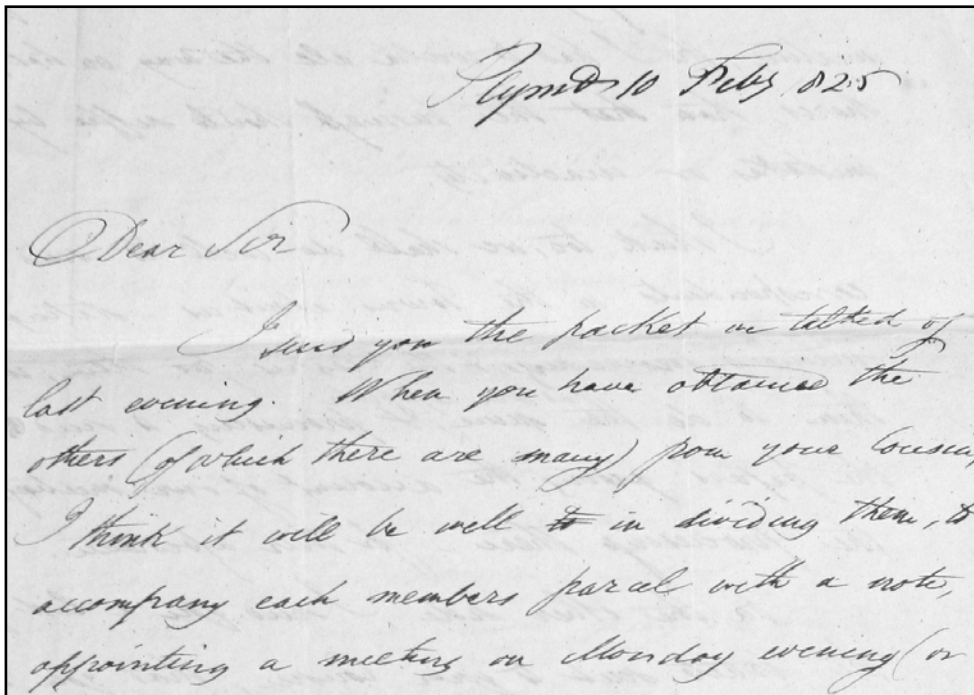 Plymo 10 Feby 825
Dear Sir
I send you the packet we talked of
last evening. When you have obtained the
others (of which there are many) from your Cousin,
I think it will be well in dividing them, to
accompany each members parcel with a note,
appointing a meeting on Monday evening (or